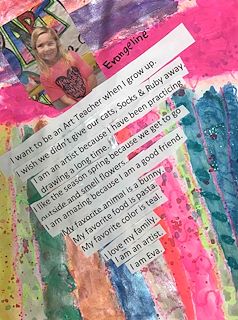 ART
Evangeline
I want to be an Art Teacher when I grow up.
I wish we didn't give our cats, Socks & Ruby away.
I am an artist because I have been practicing
drawing a long time.
I like the season spring because we get to go
outside and smell flowers.
I am amazing because I am a good friend.
My favorite animal is a bunny.
My favorite food is pasta.
My favorite color is teal.
I love my family.
I am an artist.
I am Eva.